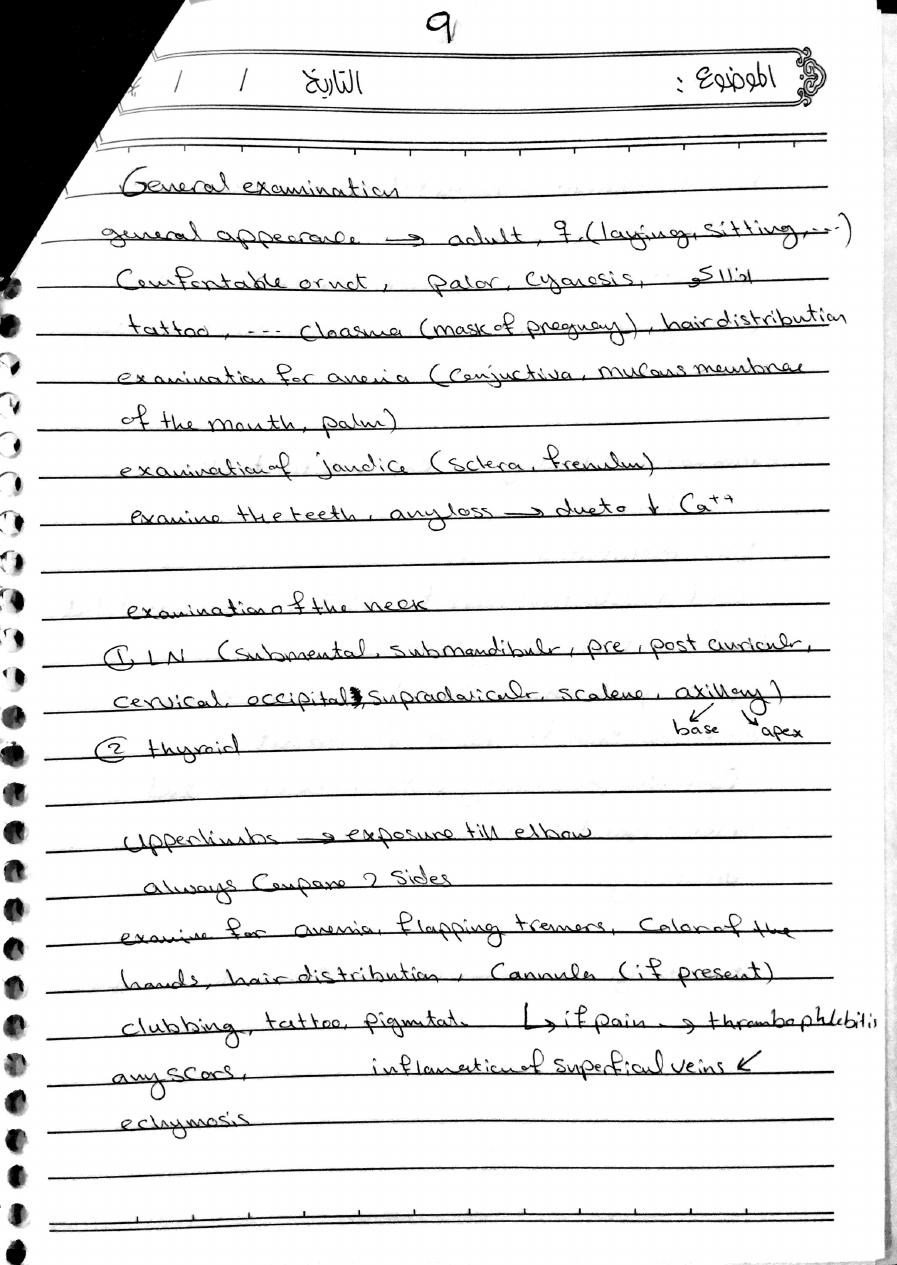 9
الموضوع :
التاريخ / /
General examination
general appearance → adult, ♀. (laying, sitting, ...)
Comfortable or not, palor, cyanosis,
tattoo, --- cloasma (mask of pregnay), hair distribution
examination for anemia (conjuctiva, mucous membrae
of the mouth, palm)
examination of jandice (sclera, frenulum)
examine the teeth, any loss → due to ↓ Ca++
examination of the neck
① LN (submental, submandibulr, pre, post auriculr,
cervical, occipital, supraclaviculr, scalene, axillary)
base apex
② thyroid
Upper limbs → exposure till elbow
always Compare 2 sides
examine for anemia, flapping tremers, Color of the
hands, hair distribution, Cannula (if present)
clubbing, tattoo, pigmtat. ↳ if pain → thrombophlebitis
any scars, inflamation of superfical veins ↙
echymosis